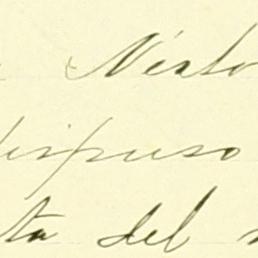 Nesto
dispuso
ta del